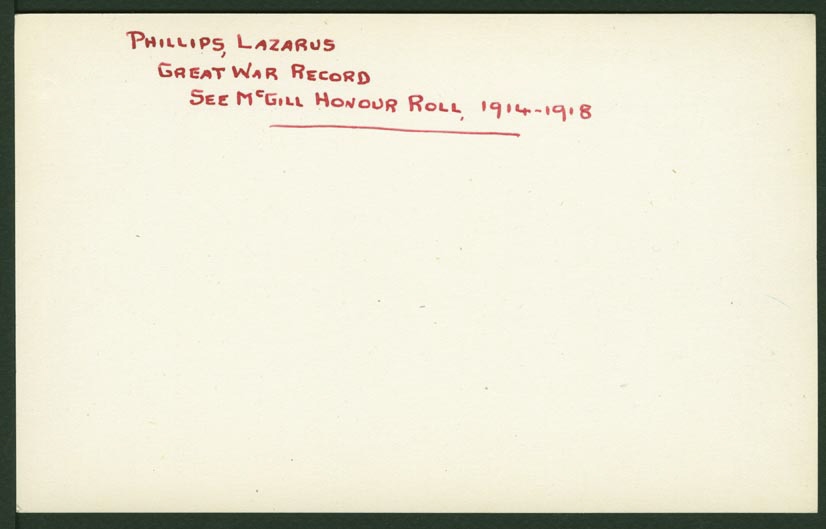 PHILLIPS, LAZARUS
GREAT WAR RECORD
SEE McGILL HONOUR ROLL, 1914-1918